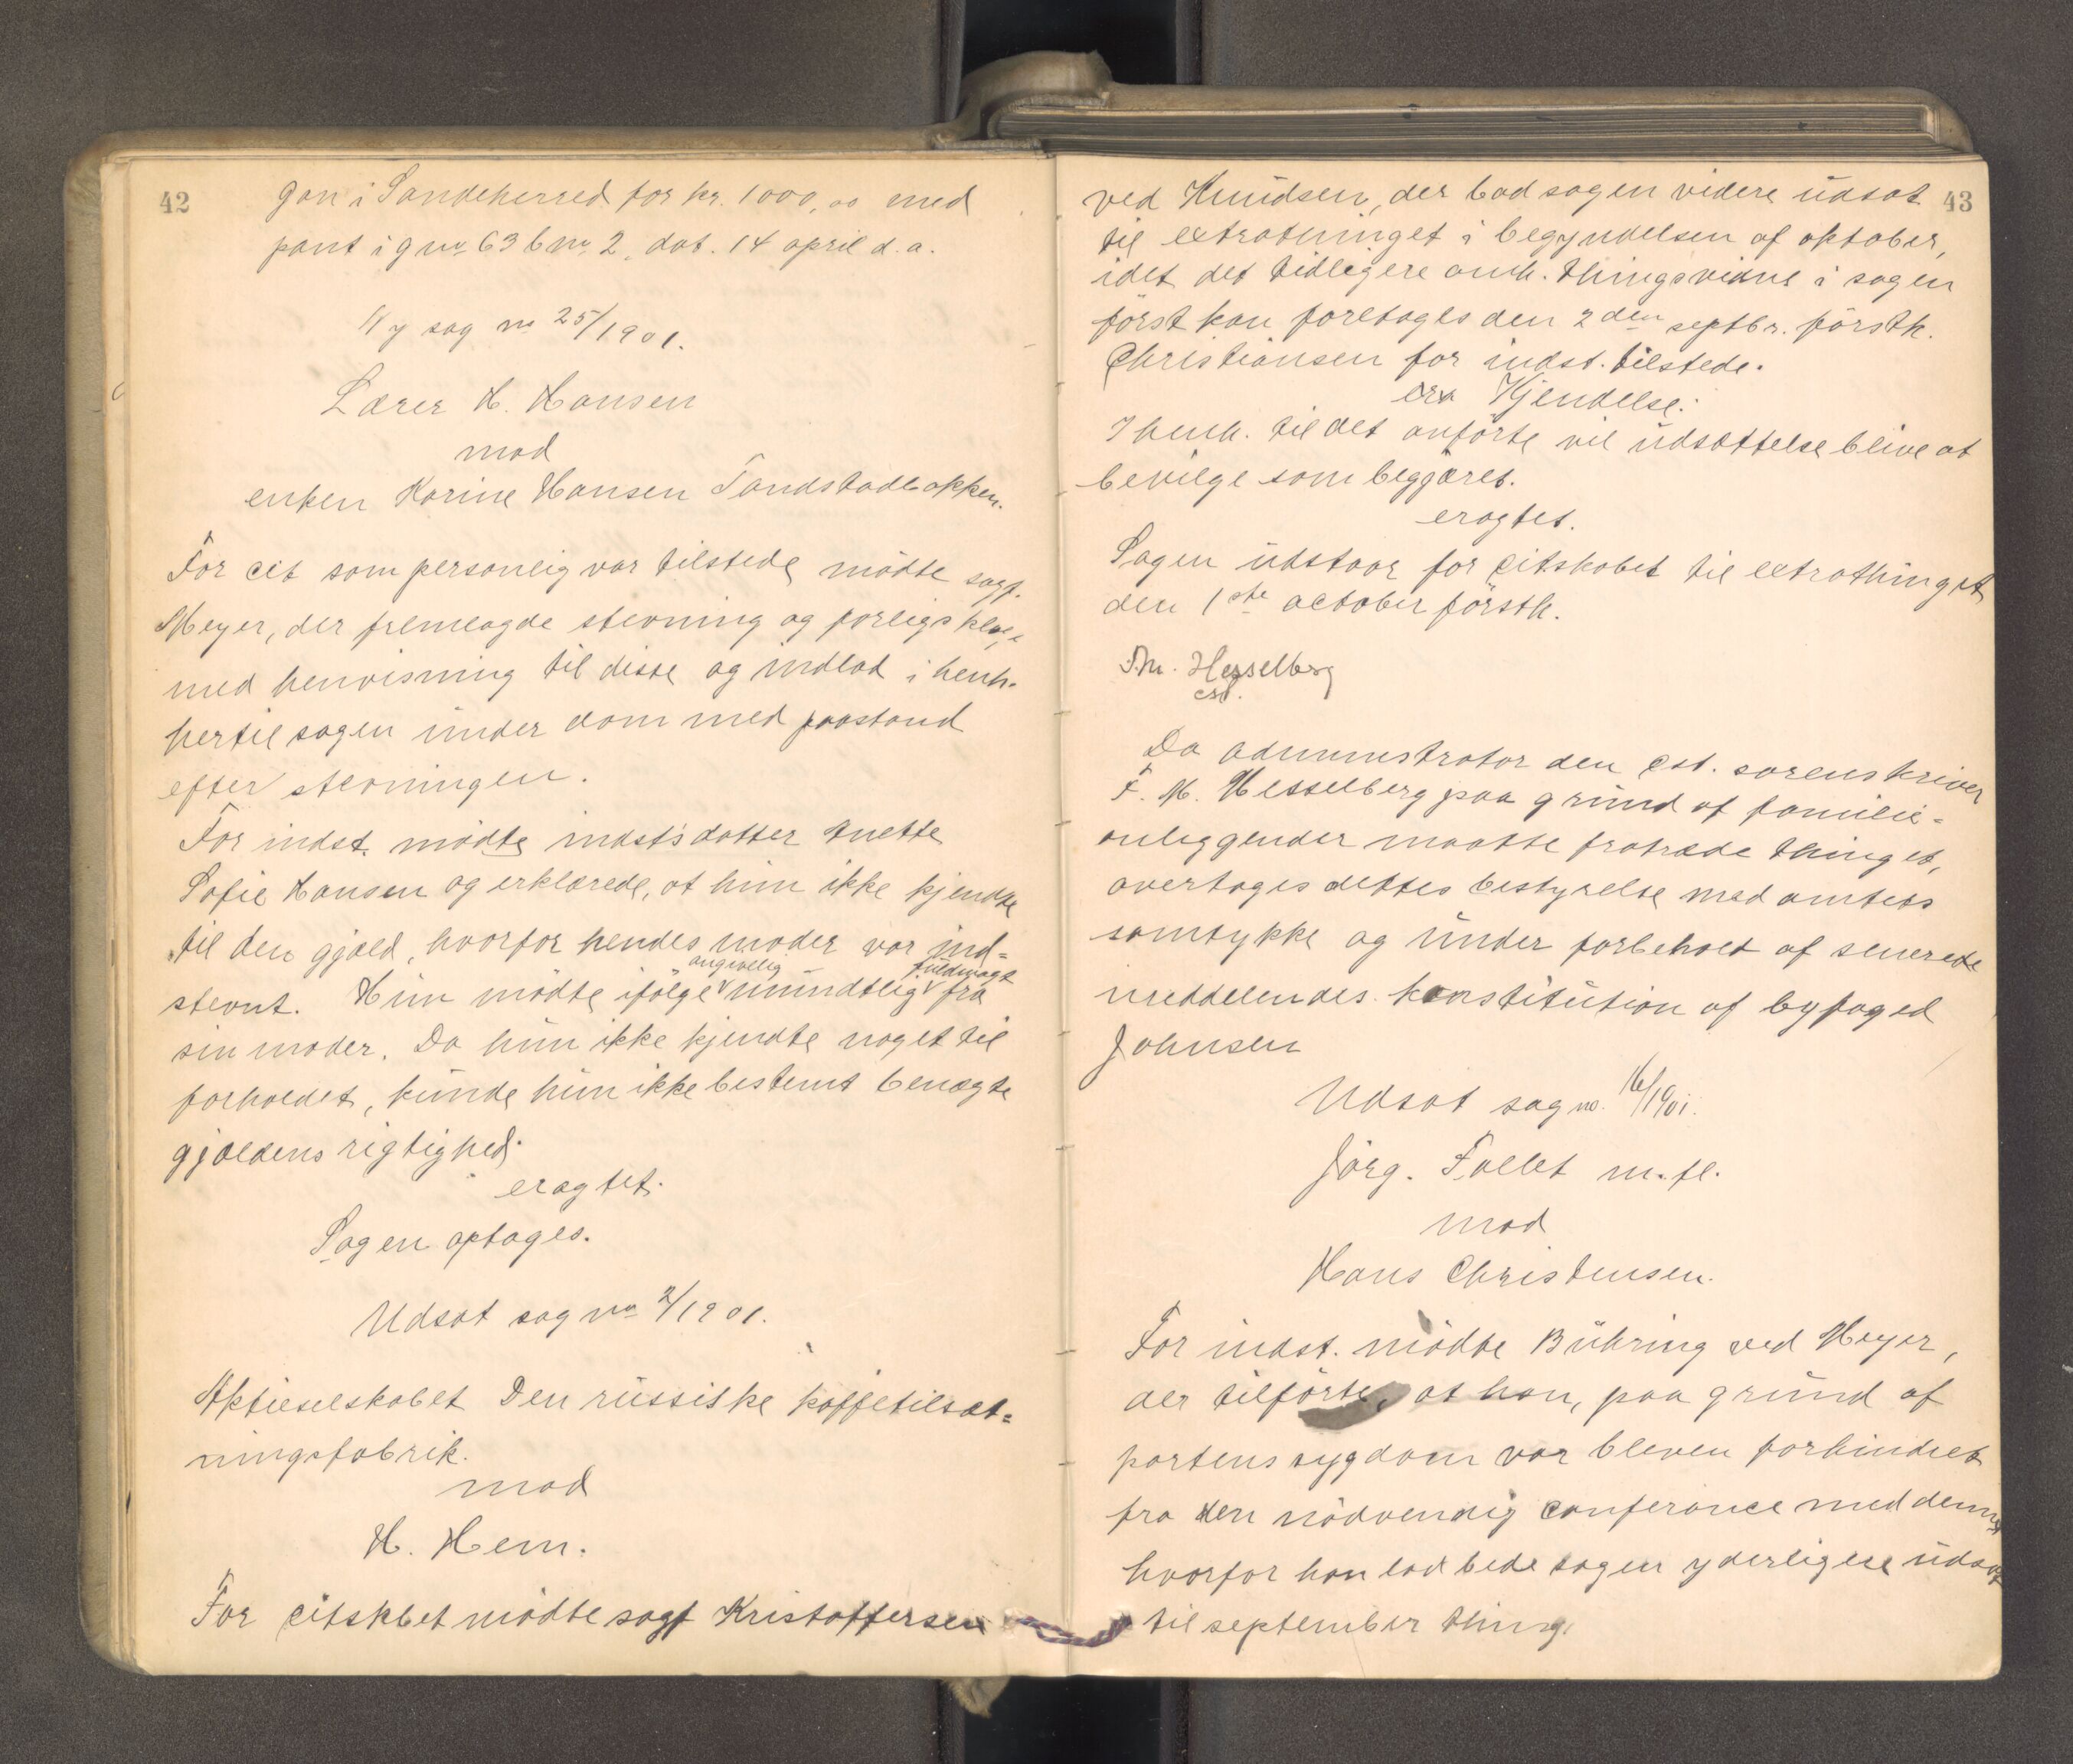 42
gen i Sandeherred for kr. 1000,00 med
pant i gno 63 bno 2, dat. 14 april d. a.
Ny sag no 25/1901.
Lærer H. Hansen
mod
enken Karine Hansen Tandstadbakken.
For cit som personlig var tilstede mödte sagf.
Meyer, der fremlagde stevning og forligsklage
med henvisning til disse og indlod i henh.
hertil sagen under dom med paastand
efter stevningen.
For indst. mödte indst's datter Anette
Sofie Hansen og erklærede, at hun ikke kjendte
til den gjæld, hvorfor hendes moder var ind-
angivelig fuldmagt
stevnt. Hun mödte ifölge mundtlig fra
sin moder. Da hun ikke kjendte noget til
forholdet, kunde hun ikke bestemt benægte
gjældens rigtighed.
eragtet.
Sagen optages.
Udsat sag no 2/1901.
Aktieselskabet Den russiske kaffetilsæt-
ningsfabrik.
mod
H. Hem.
For citskbet mödte sagf Kristoffersen
43
ved Knudsen, der bad sagen videre udsat
til extrathinget i begyndelsen af oktober,
idet det tidligere omh. thingsvidne i sagen
först kan foretages den 2den septbr. förstk.
Christiansen for indst. tilstede.
Kjendelse:
I henh. til det anförte vil udsættelse blive at
bevilge som begjæret.
eragtet.
Sagen udstaar for citskabet til extrathinget
den 1ste october förstk.
F.M. Hesselberg
cst.
Da administrator den cst. sorenskriver
F. M. Hesselberg paa grund af familie-
anliggender maatte fratræde thinget,
overtages dettes bestyrelse med amtets
samtykke og under forbehold af senerede
meddelendes konstitution af byfoged
Johnsen
Udsat sag no. 16/1901.
Jörg. Follet m. fl.
mod
Hans Christensen.
For indst. mödte Bühring ved Meyer,
der tilförte, at han, paa grund af
partens sygdom var bleven forhindret
fra den nödvendig conferance med denne
hvorfor han lod bede sagen yderligere udsat
til september thing.